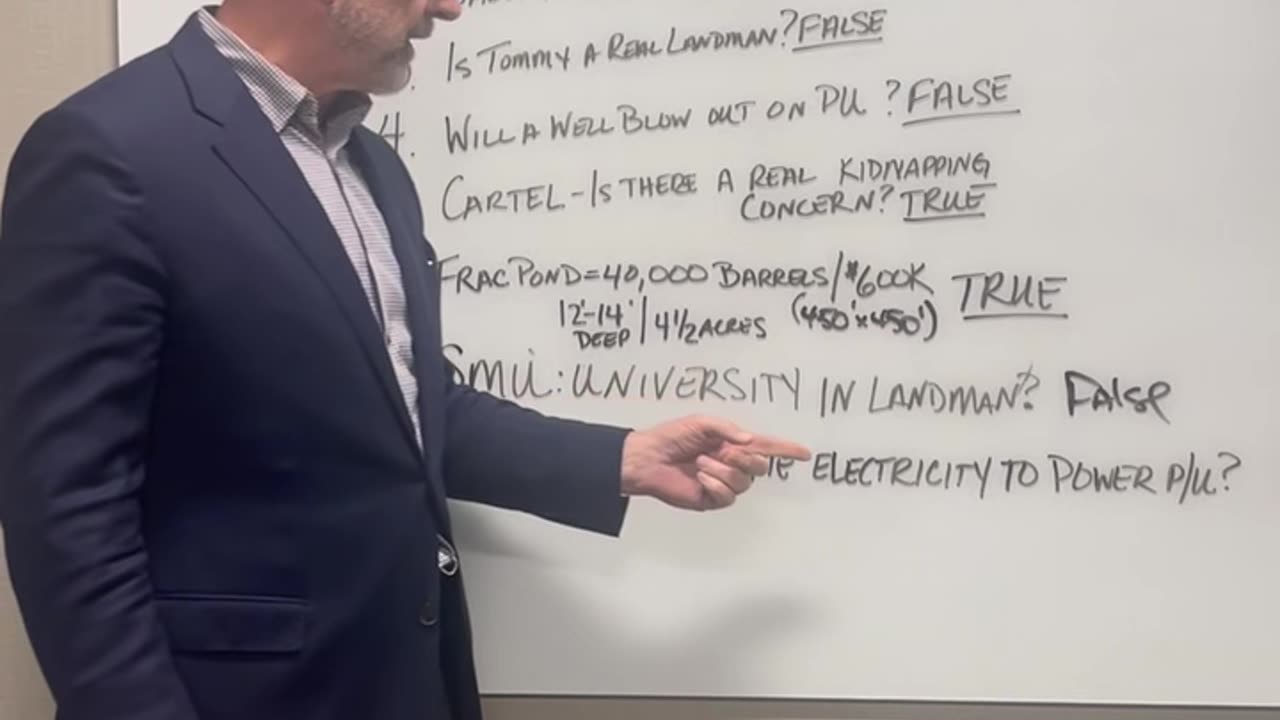 IS TOMMY A REAL LANDMAN? FALSE
4. WILL A WELL BLOW OUT ON PU? FALSE
CARTEL-IS THERE A REAL KIDNAPPING
CONCERN? TRUE
FRAC POND=40,000 BARRELS/$600K TRUE
12'-14' DEEP | 4 1/2 ACRES (450'x450')
SMU: UNIVERSITY IN LANDMAN? False
ELECTRICITY TO POWER P/U?